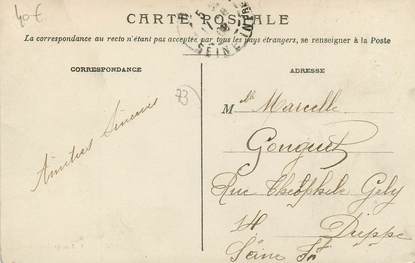 40€
CARTE POSTALE
La correspondance au recto n'étant pas acceptée par tous les pays étrangers, se renseigner à la Poste
SEINE
CORRESPONDANCE
ADRESSE
73
Mlle Marcelle
Rue Théophile Gely
Dieppe
Seine Inf
Amitiés Sincères